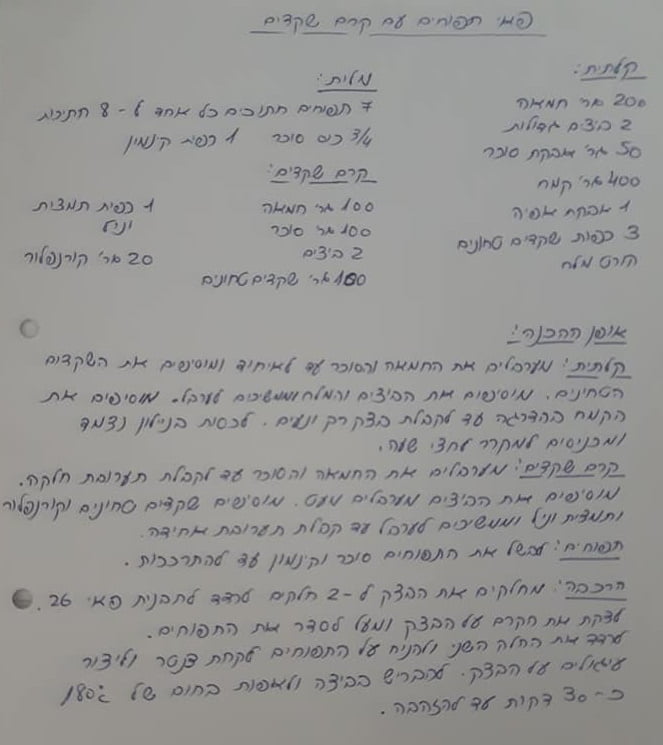 פאי תפוחים עם קרם שקדים
קלתית:
200 גר' חמאה
2 ביצים גדולות
50 גר' אבקת סוכר
400 גר' קמח
1 אבקת אפיה
3 כפות שקדים טחונים
קורט מלח
מלית:
7 תפוחים חתוכים כל אחד ל-8 חתיכות
3/4 כוס סוכר 1 כפית קינמון
קרם שקדים:
100 גר' חמאה 1 כפית תמצית
100 גר' סוכר וניל
2 ביצים 20 גר' קורנפלור
100 גר' שקדים טחונים
אופן ההכנה:
קלתית: מערבלים את החמאה והסוכר עד לאיחוד ומוסיפים את השקדים
הטחינים. מוסיפים את הביצים והמלח וממשיכים לערבל. מוסיפים את
הקמח בהדרגה עד לקבלת בצק רק ונעים. לכסות בניילון נצמד
ומכניסים למקרר לחצי שעה.
קרם שקדים: מערבלים את החמאה והסוכר עד לקבלת תערובת חלקה.
מוסיפים את הביצים מערבלים מעט. מוסיפים שקדים טחונים וקורנפלור
ותמצית וניל וממשיכים לערבל עד קבלת תערובת אחידה.
תפוחים: לבשל את התפוחים סוכר וקינמון עד להתרככות.
הרכבה: מחלקים את הבצק ל-2 חלקים לרדד לתבנית פאי 26.
לצקת את הקרם על הבצק ומעל לסדר את התפוחים.
לרדד את החלק השני ולהניח על התפוחים לקחת צנטר וליצור
עיגולים על הבצק. להבריש בביצה ולאפות בחום של 180°
כ-30 דקות עד להזהבה.